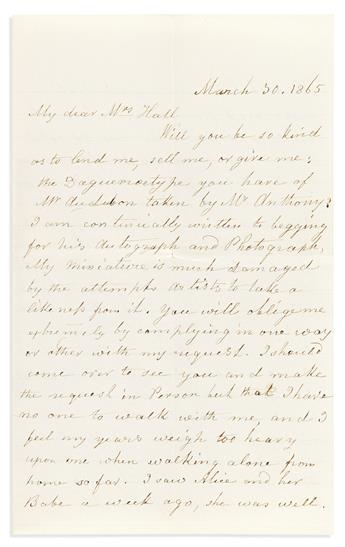 March 30. 1865
My dear Mrs Hall
Will you be so kind
as to lend me, sell me, or give me;
the Daguereotype you have of
Mr Audubon taken by Mr Anthony?
I am continually written to begging
for his Autograph and Photograph,
My miniature is much damaged
by the attempts artists to take a
likeness from it. You will oblige me
extremely by complying in one way
or other with my request. I should
come over to see you and make
the request in Person but that I have
no one to walk with me, and I
feel my years weigh too heavy
upon one when walking alone from
home so far. I saw Alice and her
Babe a week ago, she was well.